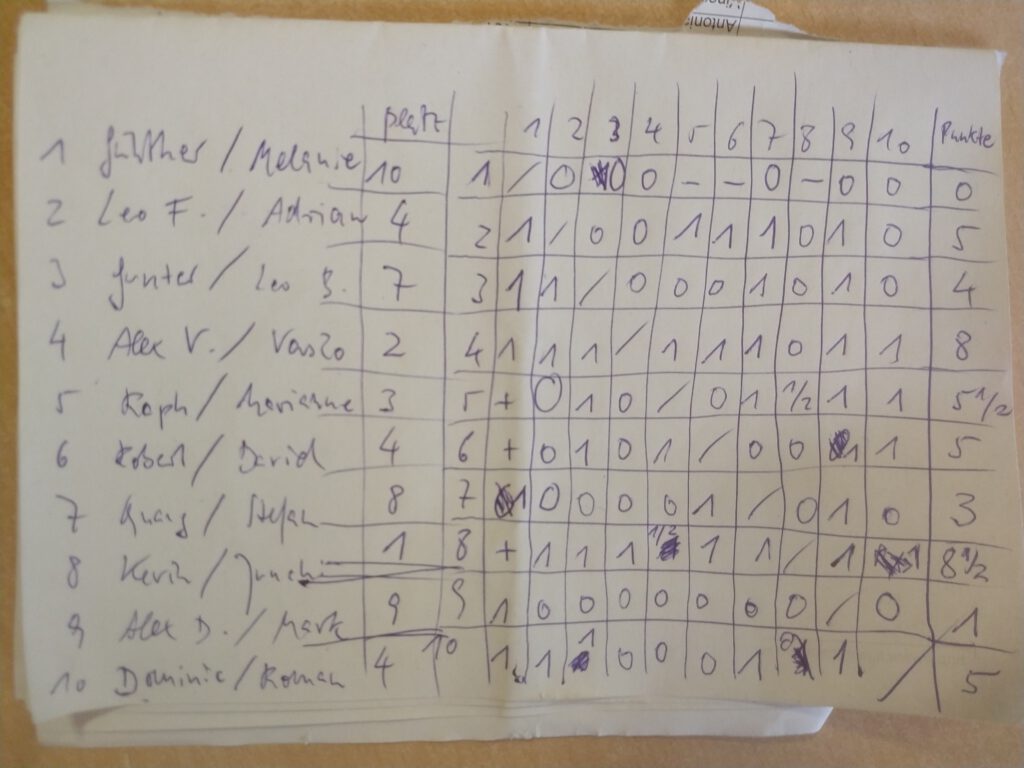 Antoni
Platz 1 2 3 4 5 6 7 8 9 10 Punkte
1 Günther / Melanie 10 1 / 0 0 0 - - 0 - 0 0 0
2 Leo F. / Adrian 4 2 1 / 0 0 1 1 1 0 1 0 5
3 Gunter / Leo B. 7 3 1 1 / 0 0 0 1 0 1 0 4
4 Alex V. / Vasko 2 4 1 1 1 / 1 1 1 0 1 1 8
5 Raph / Marianne 3 5 + 0 1 0 / 0 1 1/2 1 1 5 1/2
6 Robert / David 4 6 + 0 1 0 1 / 0 0 1 1 5
7 Quang / Stefan 8 7 1 0 0 0 0 1 / 0 1 0 3
8 Kevin / Junchi 1 8 + 1 1 1 1/2 1 1 / 1 1 8 1/2
9 Alex D. / Mark 9 9 1 0 0 0 0 0 0 0 / 0 1
10 Dominic / Roman 4 10 1 1 1 0 0 0 1 0 1 / 5